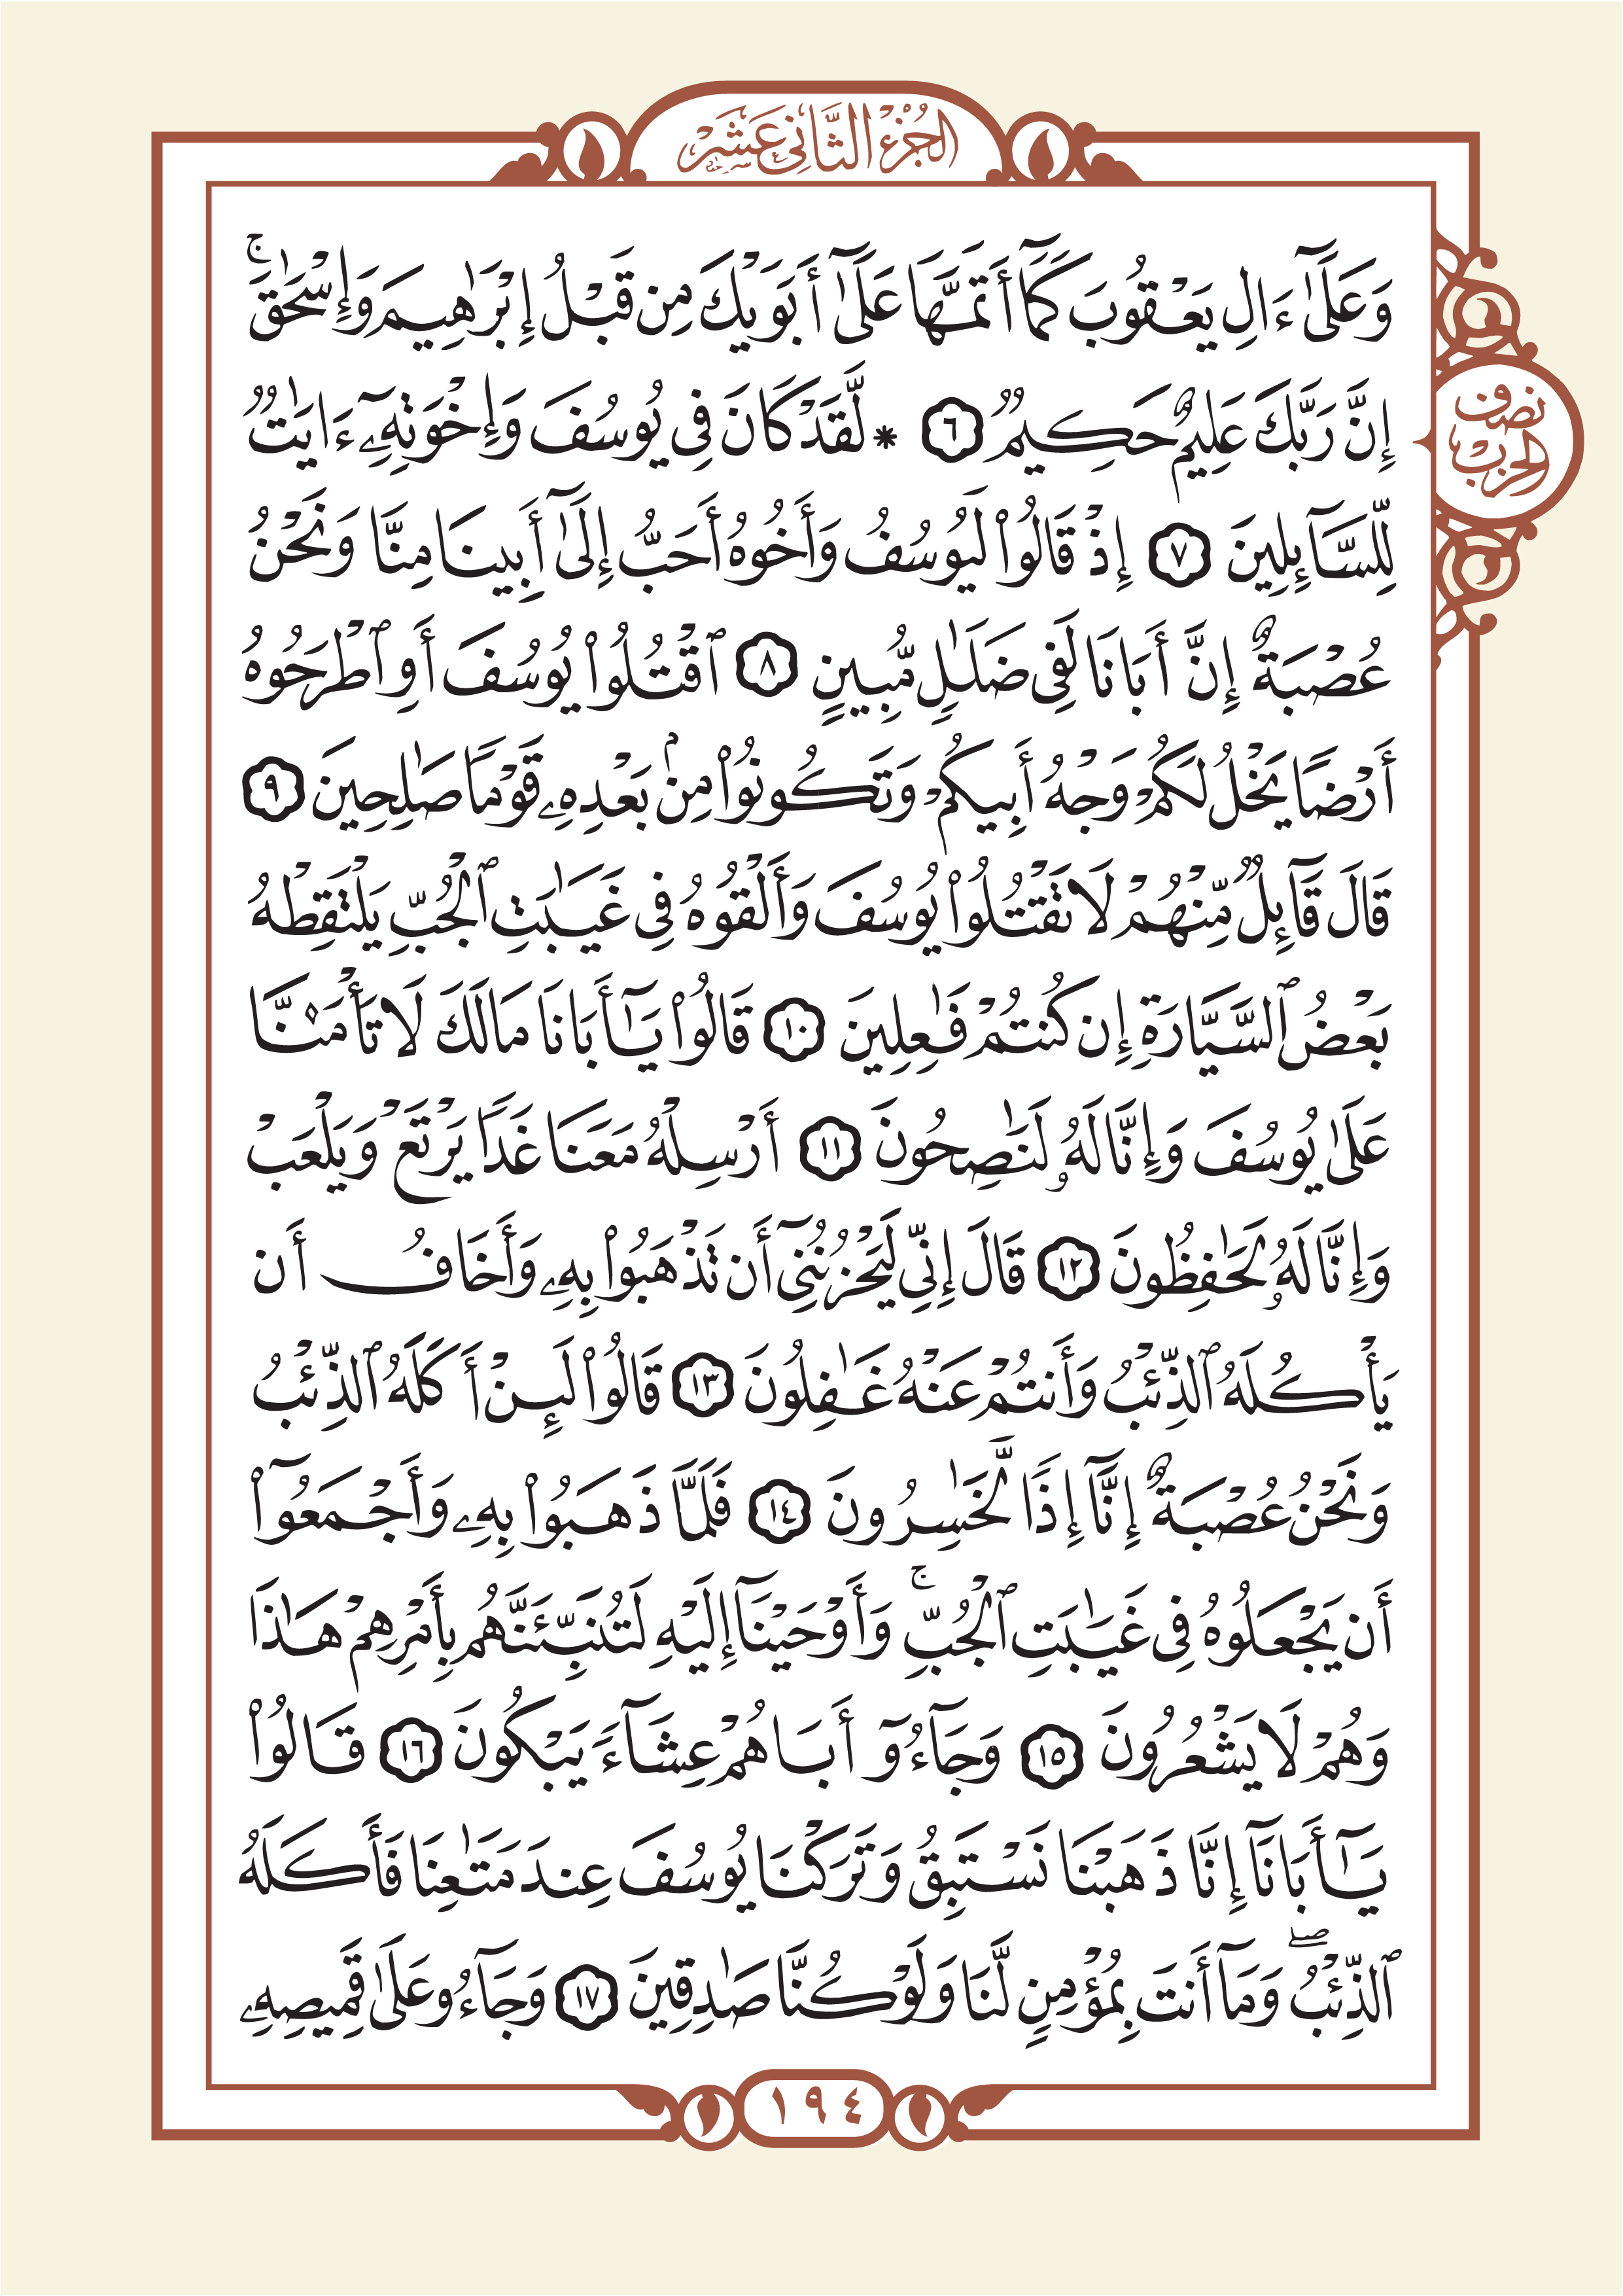 الجزء الثاني عشر
وَعَلَىٰٓ ءَالِ يَعۡقُوبَ كَمَآ أَتَمَّهَا عَلَىٰٓ أَبَوَيۡكَ مِن قَبۡلُ إِبۡرَٰهِيمَ وَإِسۡحَٰقَۚ
إِنَّ رَبَّكَ عَلِيمٌ حَكِيمٞ ٦ * لَّقَدۡ كَانَ فِي يُوسُفَ وَإِخۡوَتِهِۦٓ ءَايَٰتٞ
نصف
الحزب
لِّلسَّآئِلِينَ ٧ إِذۡ قَالُواْ لَيُوسُفُ وَأَخُوهُ أَحَبُّ إِلَىٰٓ أَبِينَا مِنَّا وَنَحۡنُ
عُصۡبَةٌ إِنَّ أَبَانَا لَفِي ضَلَٰلٖ مُّبِينٍ ٨ ٱقۡتُلُواْ يُوسُفَ أَوِ ٱطۡرَحُوهُ
أَرۡضٗا يَخۡلُ لَكُمۡ وَجۡهُ أَبِيكُمۡ وَتَكُونُواْ مِنۢ بَعۡدِهِۦ قَوۡمٗا صَٰلِحِينَ ٩
قَالَ قَآئِلٞ مِّنۡهُمۡ لَا تَقۡتُلُواْ يُوسُفَ وَأَلۡقُوهُ فِي غَيَٰبَتِ ٱلۡجُبِّ يَلۡتَقِطۡهُ
بَعۡضُ ٱلسَّيَّارَةِ إِن كُنتُمۡ فَٰعِلِينَ ١٠ قَالُواْ يَٰٓأَبَانَا مَالَكَ لَا تَأۡمَ۬نَّا
عَلَىٰ يُوسُفَ وَإِنَّا لَهُۥ لَنَٰصِحُونَ ١١ أَرۡسِلۡهُ مَعَنَا غَدٗا يَرۡتَعۡ وَيَلۡعَبۡ
وَإِنَّا لَهُۥ لَحَٰفِظُونَ ١٢ قَالَ إِنِّي لَيَحۡزُنُنِيٓ أَن تَذۡهَبُواْ بِهِۦ وَأَخَافُ أَن
يَأۡكُلَهُ ٱلذِّئۡبُ وَأَنتُمۡ عَنۡهُ غَٰفِلُونَ ١٣ قَالُواْ لَئِنۡ أَكَلَهُ ٱلذِّئۡبُ
وَنَحۡنُ عُصۡبَةٌ إِنَّآ إِذٗا لَّخَٰسِرُونَ ١٤ فَلَمَّا ذَهَبُواْ بِهِۦ وَأَجۡمَعُوٓاْ
أَن يَجۡعَلُوهُ فِي غَيَٰبَتِ ٱلۡجُبِّۚ وَأَوۡحَيۡنَآ إِلَيۡهِ لَتُنَبِّئَنَّهُم بِأَمۡرِهِمۡ هَٰذَا
وَهُمۡ لَا يَشۡعُرُونَ ١٥ وَجَآءُوٓ أَبَاهُمۡ عِشَآءٗ يَبۡكُونَ ١٦ قَالُواْ
يَٰٓأَبَانَآ إِنَّا ذَهَبۡنَا نَسۡتَبِقُ وَتَرَكۡنَا يُوسُفَ عِندَ مَتَٰعِنَا فَأَكَلَهُ
ٱلذِّئۡبُۖ وَمَآ أَنتَ بِمُؤۡمِنٖ لَّنَا وَلَوۡ كُنَّا صَٰدِقِينَ ١٧ وَجَآءُو عَلَىٰ قَمِيصِهِۦ
١٩٤